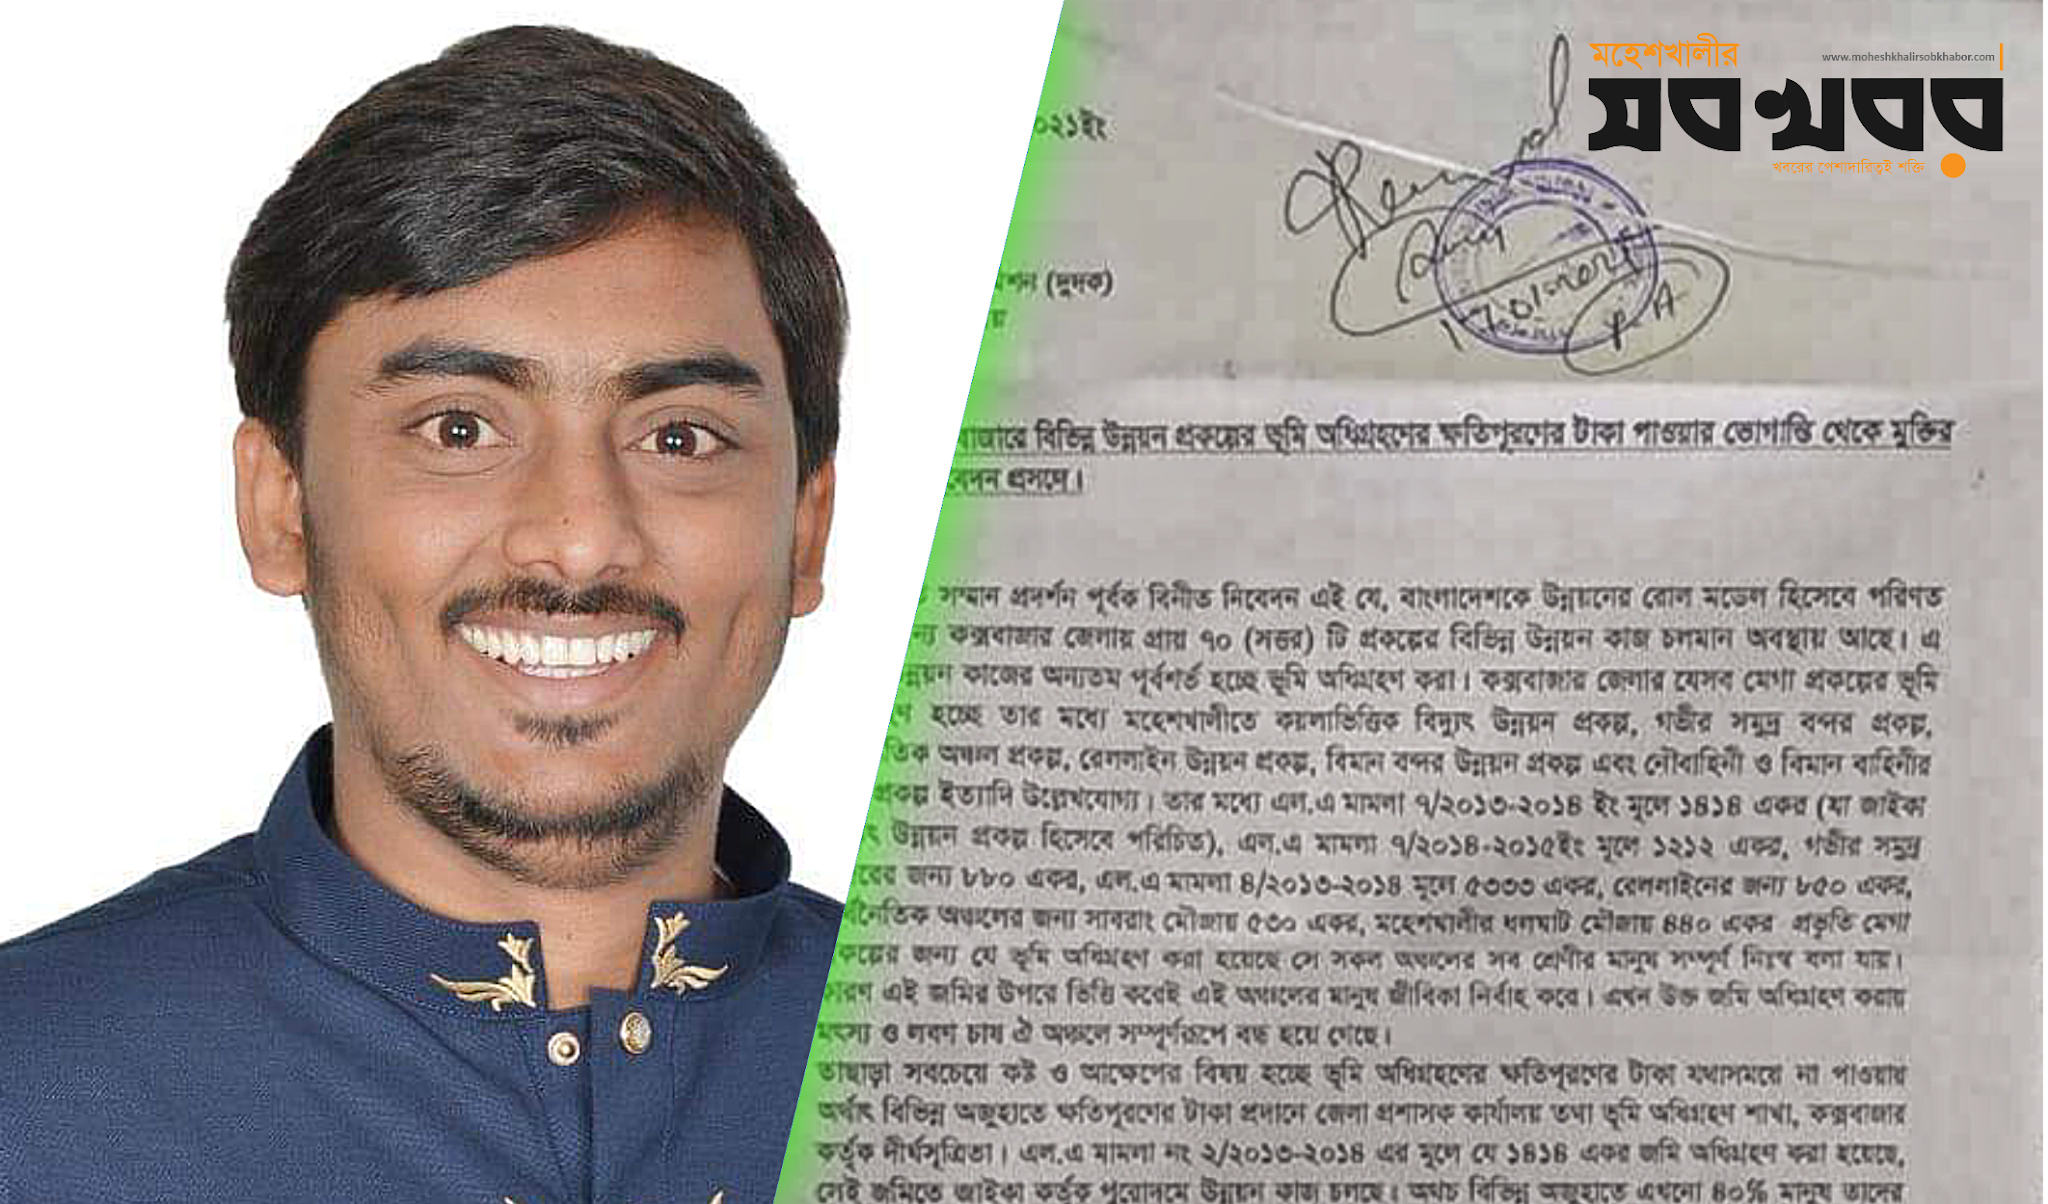 মহেশখালীর
www.moheshkhalirsobkhabor.com
সব খবর
খবরের পেশাদারিত্বই শক্তি
০২১ইং
Received
শন (দুদক)
য়
বাজারে বিভিন্ন উন্নয়ন প্রকল্পের ভূমি অধিগ্রহণের ক্ষতিপূরণের টাকা পাওয়ার ভোগান্তি থেকে মুক্তির
বেদন প্রসঙ্গে।
সম্মান প্রদর্শন পূর্বক বিনীত নিবেদন এই যে, বাংলাদেশকে উন্নয়নের রোল মডেল হিসেবে পরিণত
ন্য কক্সবাজার জেলায় প্রায় ৭০ (সত্তর) টি প্রকল্পের বিভিন্ন উন্নয়ন কাজ চলমান অবস্থায় আছে। এ
ন্নয়ন কাজের অন্যতম পূর্বশর্ত হচ্ছে ভূমি অধিগ্রহণ করা। কক্সবাজার জেলার যেসব মেগা প্রকল্পের ভূমি
ণ হচ্ছে তার মধ্যে মহেশখালীতে কয়লাভিত্তিক বিদ্যুৎ উন্নয়ন প্রকল্প, গভীর সমুদ্র বন্দর প্রকল্প,
তিক অঞ্চল প্রকল্প, রেললাইন উন্নয়ন প্রকল্প, বিমান বন্দর উন্নয়ন প্রকল্প এবং নৌবাহিনী ও বিমান বাহিনীর
প্রকল্প ইত্যাদি উল্লেখযোগ্য। তার মধ্যে এল.এ মামলা ৭/২০১৩-২০১৪ ইং মূলে ১৪১৪ একর (যা জাইকা
ৎ উন্নয়ন প্রকল্প হিসেবে পরিচিত), এল.এ মামলা ৭/২০১৪-২০১৫ইং মূলে ১২১২ একর, গভীর সমুদ্র
রের জন্য ৮৮০ একর, এল.এ মামলা ৪/২০১৩-২০১৪ মূলে ৫৩৩৩ একর, রেললাইনের জন্য ৮৫০ একর,
নৈতিক অঞ্চলের জন্য সাবরাং মৌজায় ৫৩০ একর, মহেশখালীর ধলঘাট মৌজায় ৪৪০ একর প্রভৃতি মেগা
কল্পের জন্য যে ভূমি অধিগ্রহণ করা হয়েছে সে সকল অঞ্চলের সব শ্রেণীর মানুষ সম্পূর্ণ নিঃস্ব বলা যায়।
কারণ এই জমির উপরে ভিত্তি করেই এই অঞ্চলের মানুষ জীবিকা নির্বাহ করে। এখন উক্ত জমি অধিগ্রহণ করায়
মৎস্য ও লবণ চাষ ঐ অঞ্চলে সম্পূর্ণরূপে বন্ধ হয়ে গেছে।
তাছাড়া সবচেয়ে কষ্ট ও আক্ষেপের বিষয় হচ্ছে ভূমি অধিগ্রহণের ক্ষতিপূরণের টাকা যথাসময়ে না পাওয়ায়
অর্থাৎ বিভিন্ন অজুহাতে ক্ষতিপূরণের টাকা প্রদানে জেলা প্রশাসক কার্যালয় তথা ভূমি অধিগ্রহণ শাখা, কক্সবাজার
কর্তৃক দীর্ঘসূত্রিতা। এল.এ মামলা নং ২/২০১৩-২০১৪ এর মূলে যে ১৪১৪ একর জমি অধিগ্রহণ করা হয়েছে,
সেই জমিতে জাইকা কর্তৃক পুরোদমে উন্নয়ন কাজ চলছে। অথচ বিভিন্ন অজুহাতে এখনো ৪০% মানুষ তাদের